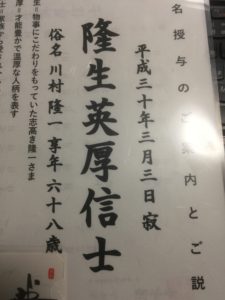 名授与のご案内とご説
平成三十年三月三日寂
隆生英厚信士
俗名川村隆一享年六十八歳
生=物事にこだわりをもっていた志高き隆一さま
厚=才能豊かで温厚な人柄を表す